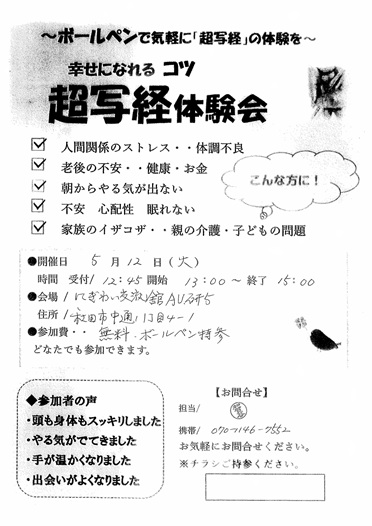 ～ボールペンで気軽に「超写経」の体験を～
幸せになれる コツ
超写経体験会
人間関係のストレス・・体調不良
老後の不安・・健康・お金
朝からやる気が出ない
不安 心配性 眠れない
家族のイザコザ・・親の介護・子どもの問題
こんな方に！
●開催日 5月12日(火)
時間 受付/12:45 開始 13:00～終了 15:00
●会場/にぎわい交流館AU研5
住所/秋田市中通1丁目4-1
●参加費・・無料・ボールペン持参
どなたでも参加できます。
◆参加者の声
・頭も身体もスッキリしました
・やる気がでてきました
・手が温かくなりました
・出会いがよくなりました
【お問合せ】
担当/
携帯/ 070-1146-7552
お気軽にお問合せください。
※チラシご持参ください。